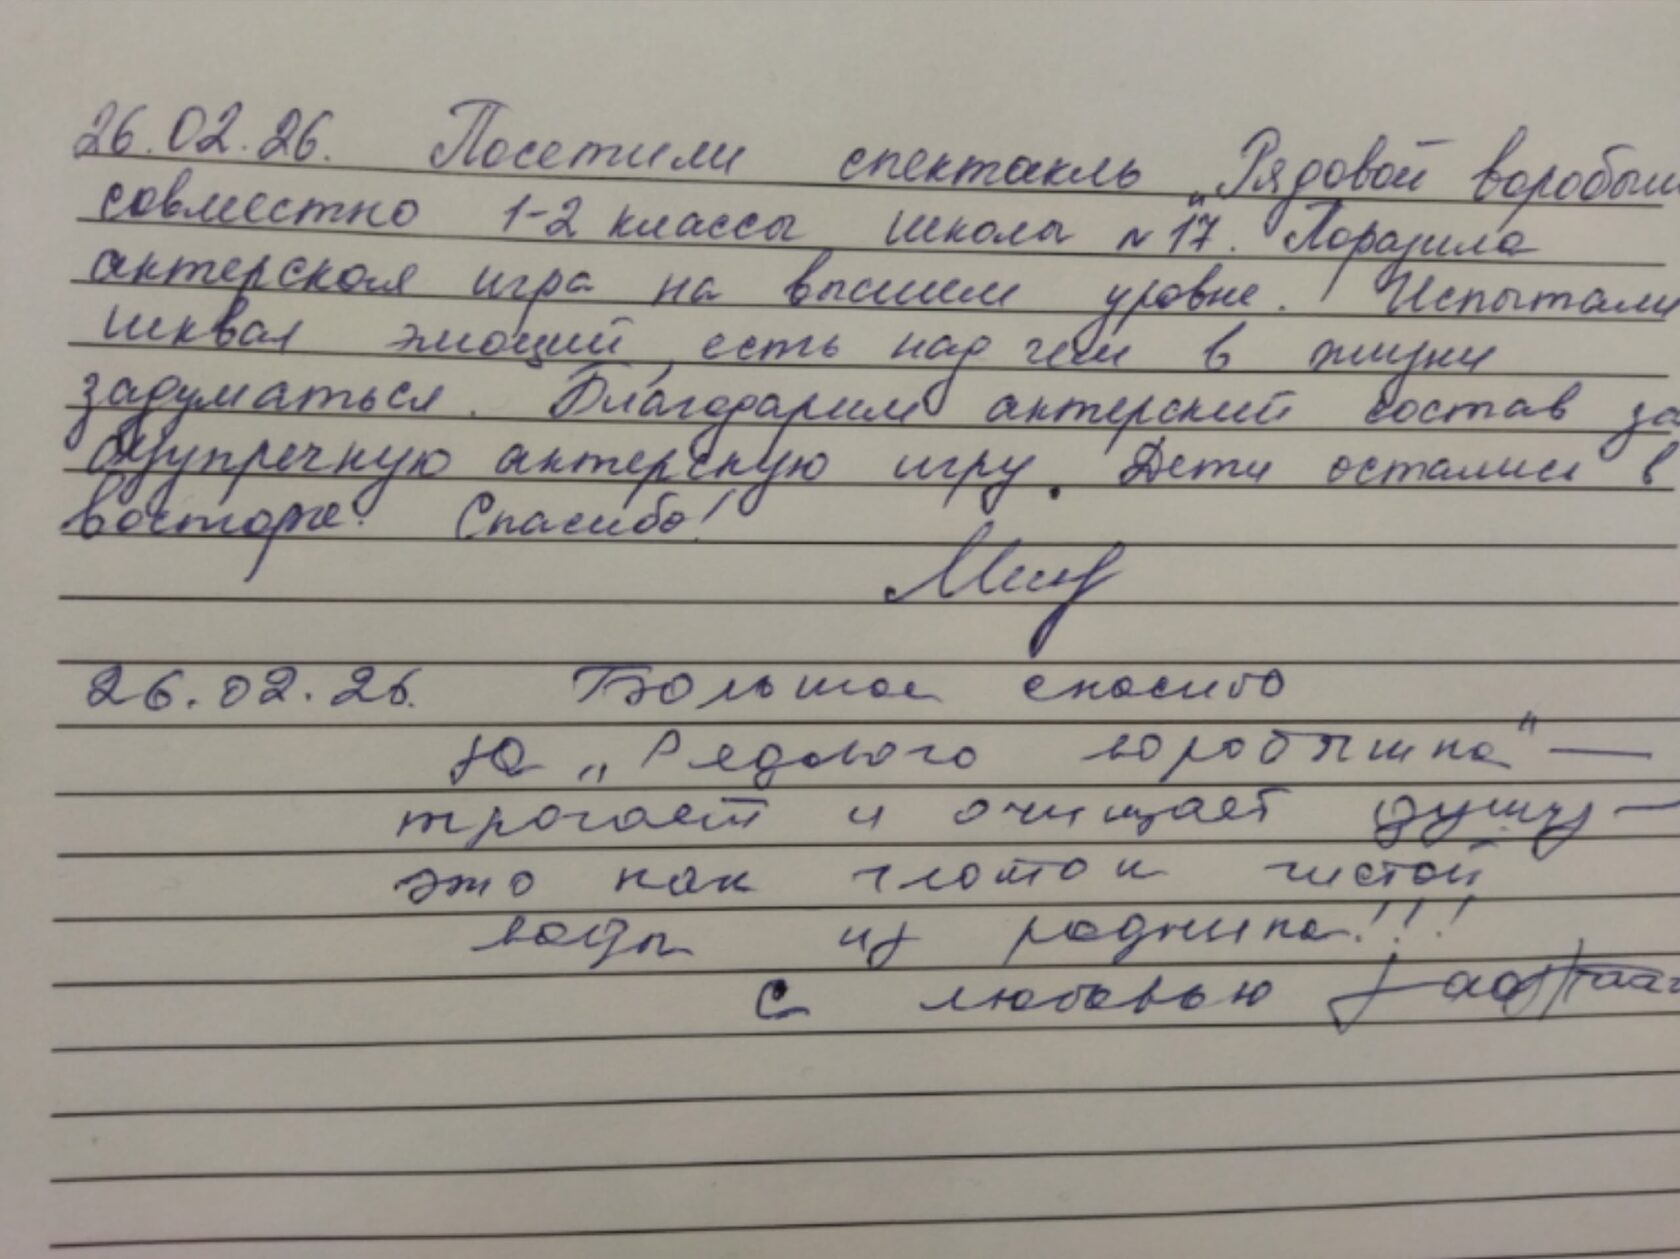 26.02.26. Посетили спектакль „Рядовой воробыш
совместно 1-2 классы школы №17. Поразила
актерская игра на высшем уровне. Испытали
шквал эмоций, есть над чем в жизни
задуматься. Благодарим актерский состав за
безупречную актерскую игру. Дети остались в
восторге. Спасибо!
26.02.26. Большое спасибо
за „Рядового воробышка" —
трогает и очищает душу —
это как глоток чистой
воды из родника!!!
С любовью